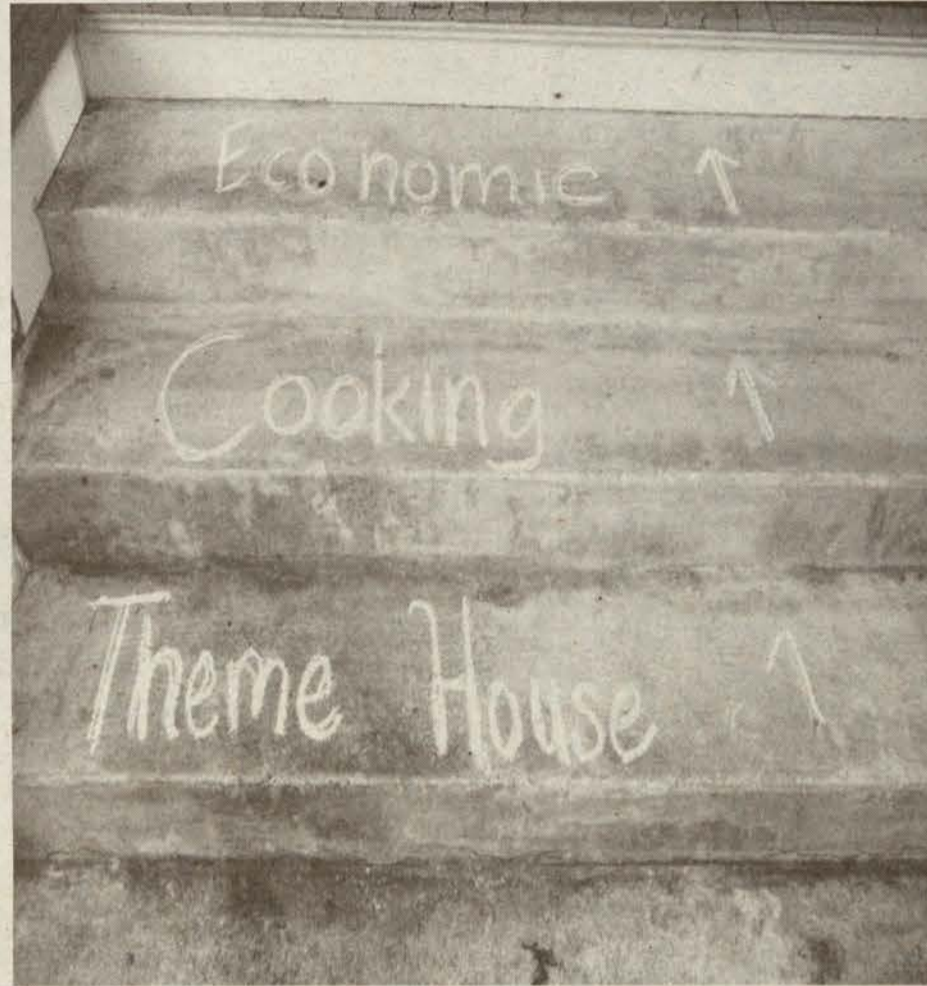 Economic ↑
Cooking ↑
Theme House ↑